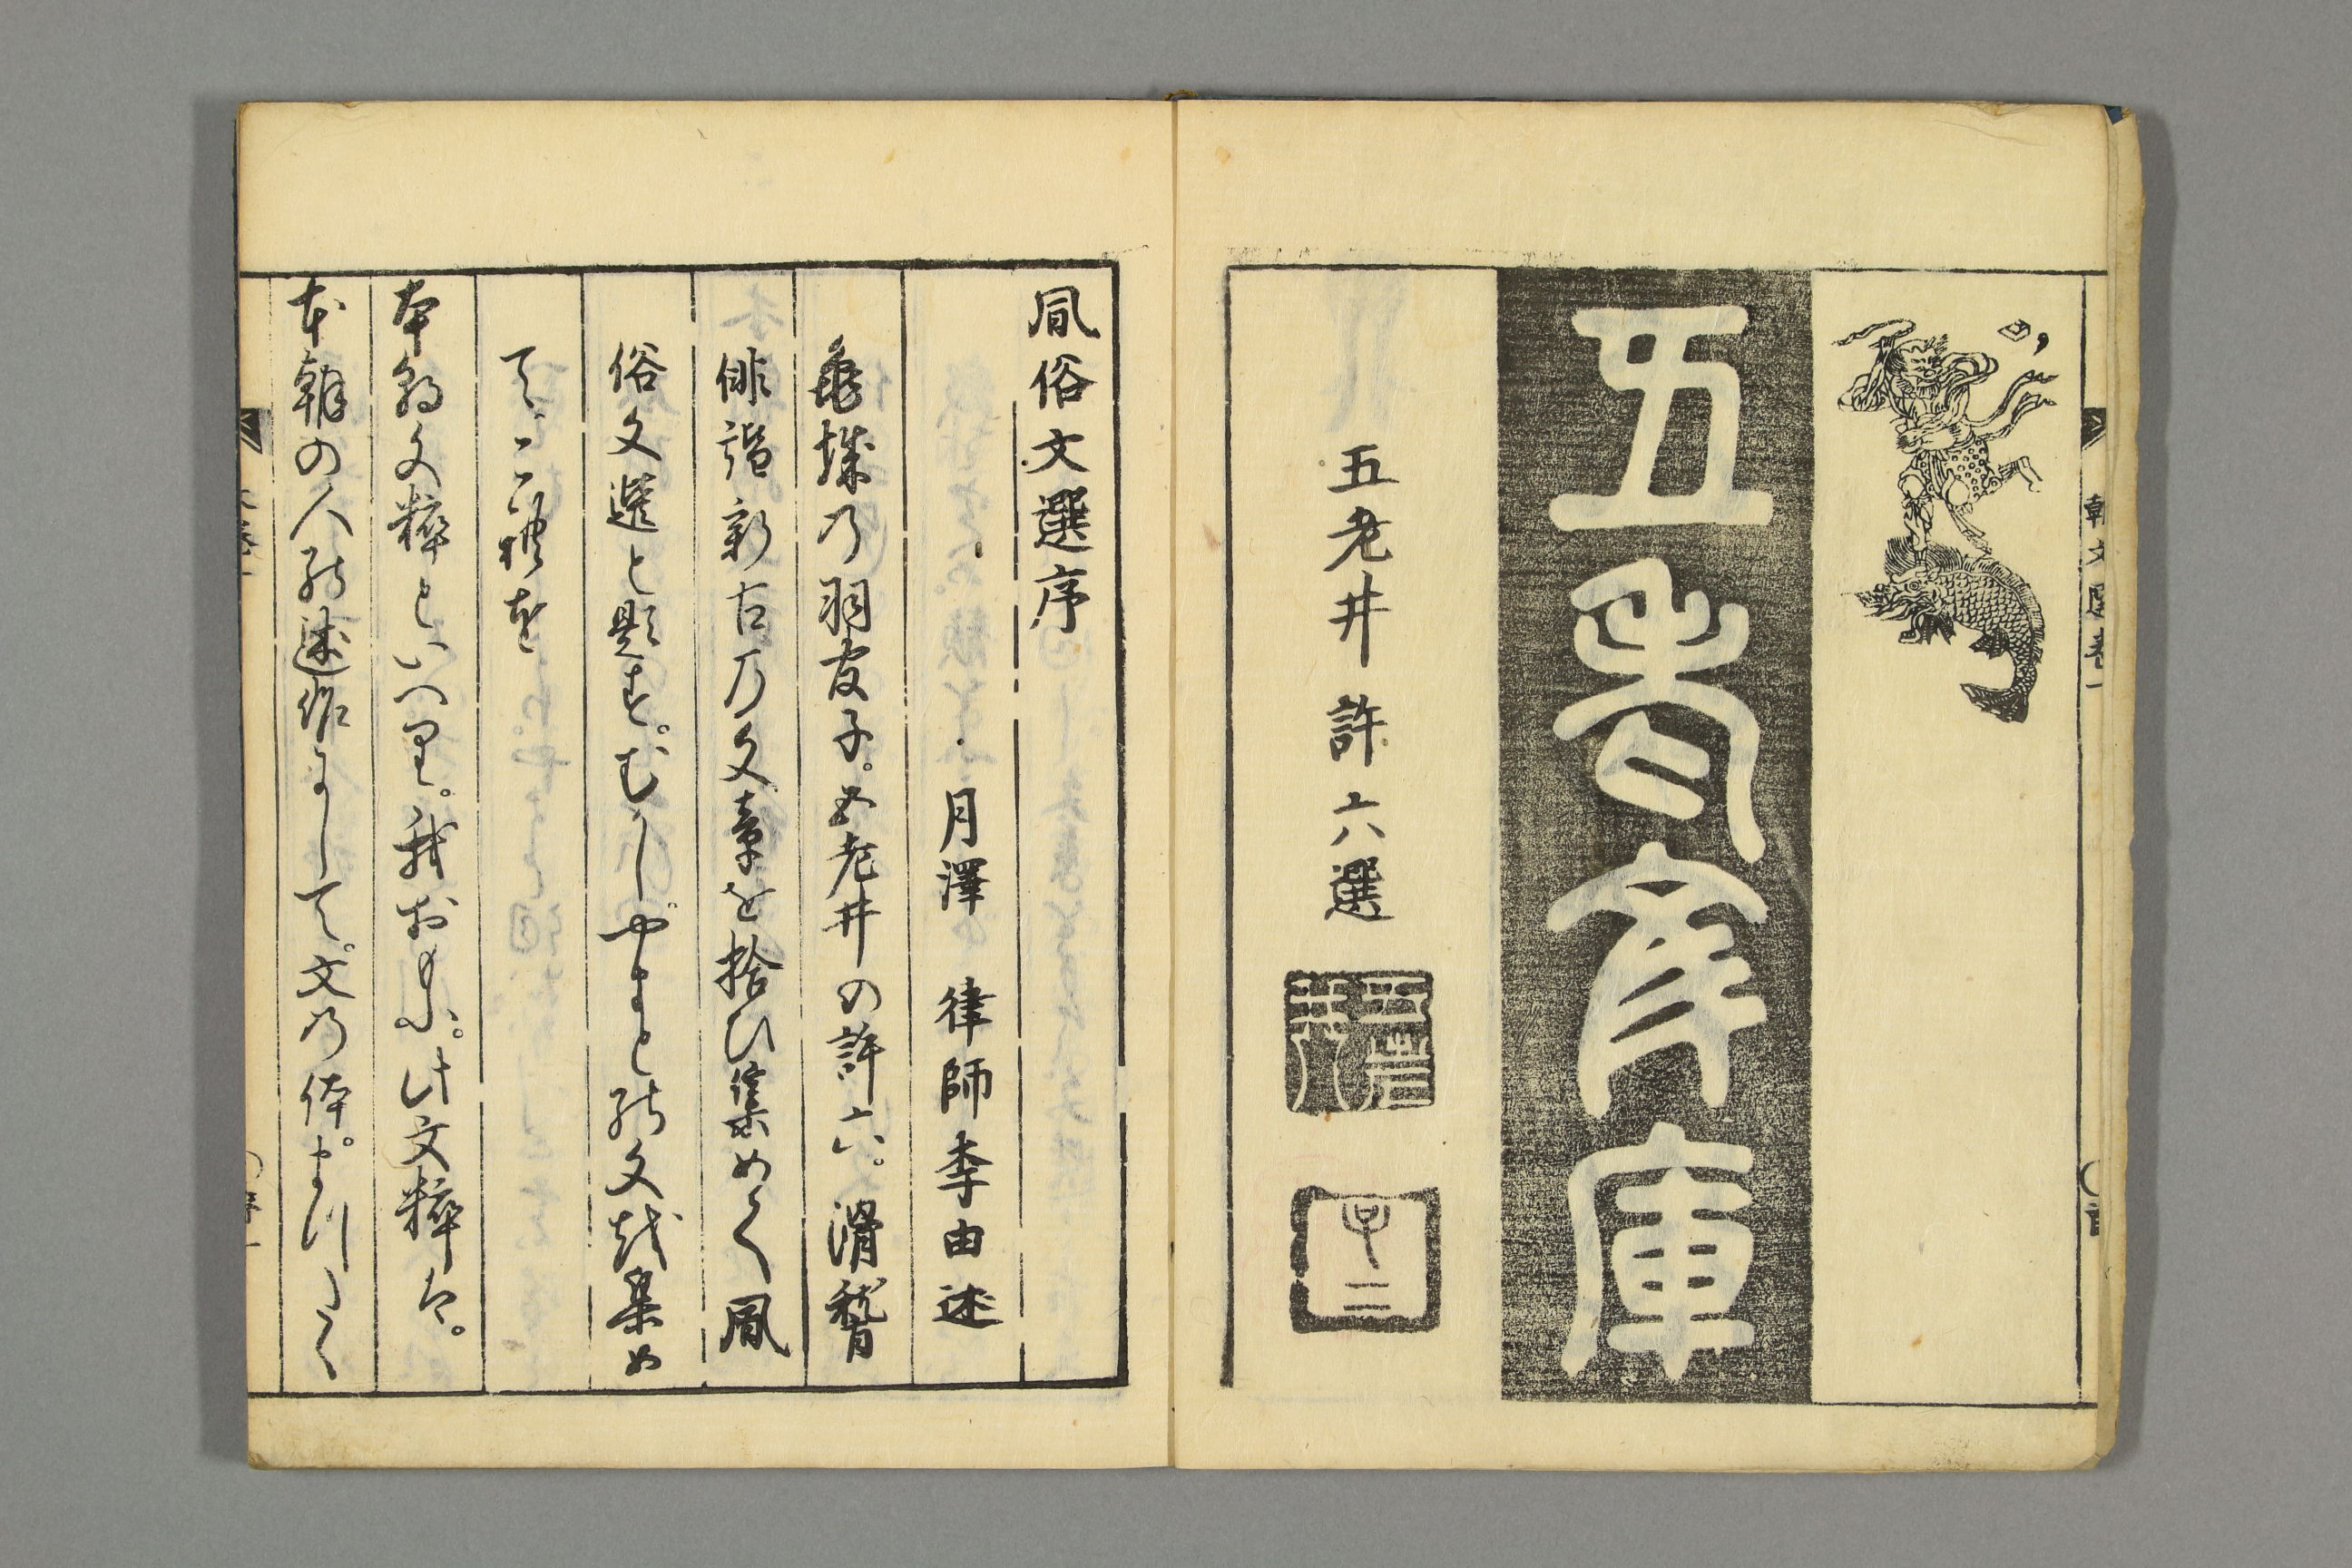 朝文選巻一
五老彣庫
五老井許六選
風俗文選序
月澤律師李由述
亀城乃羽官子。五老井の許六。滑稽
俳諧新古乃文章を拾ひ集めて風
俗文選と題す。むかしやまとの文を集め
て。これを
本朝文粹といへり。我おもふ。此文粹は。
本朝の人の述作にして。文乃体。まつたく